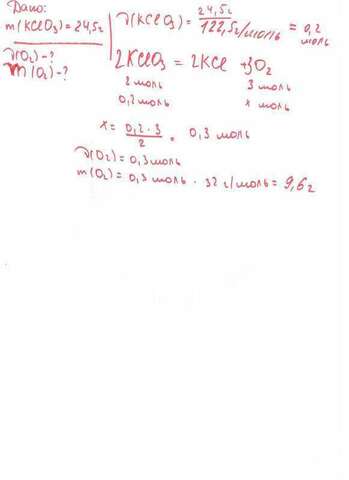 Дано:
m(KClO3) = 24,5г
ν(O2) - ?
m(O2) - ?
ν(KClO3) = 24,5г / 122,5г/моль = 0,2 моль
2KClO3 = 2KCl + 3O2
2 моль 3 моль
0,2 моль x моль
x = 0,2 · 3 / 2 = 0,3 моль
ν(O2) = 0,3 моль
m(O2) = 0,3 моль · 32 г/моль = 9,6г